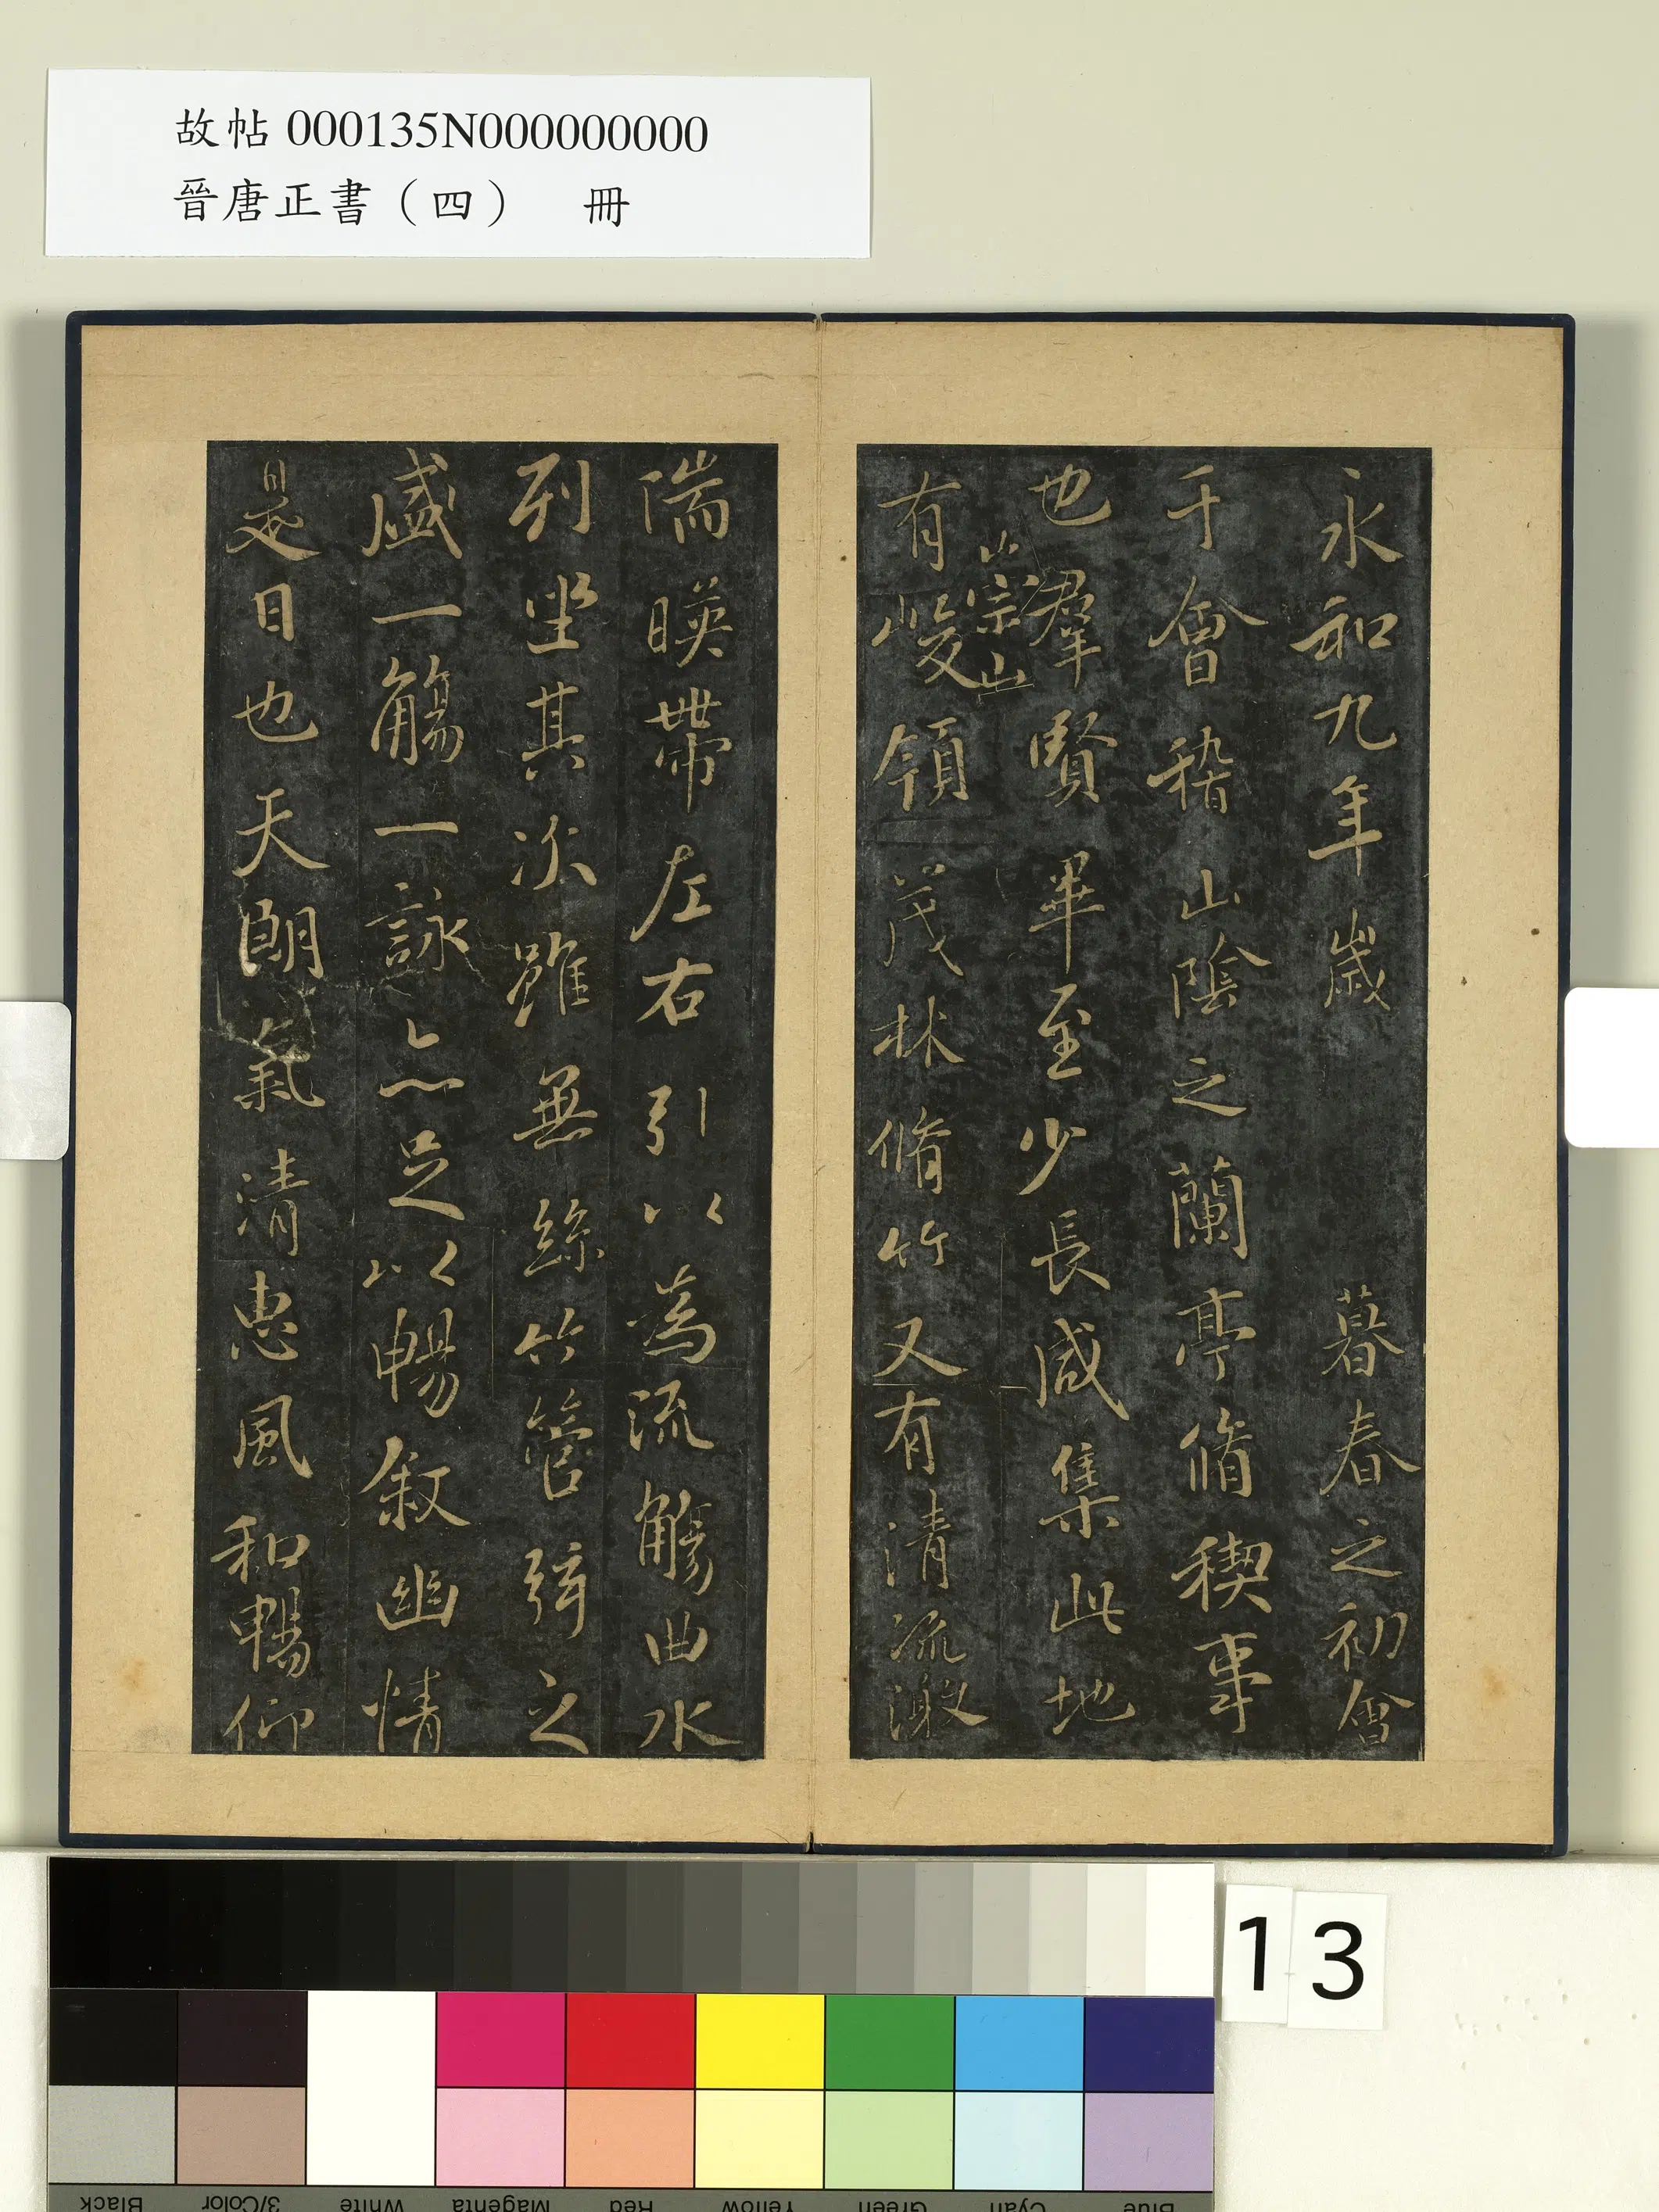 故帖 000135N000000000
晉唐正書（四） 冊
永和九年歲 暮春之初會
于會稽山陰之蘭亭脩稧事
也羣賢畢至少長咸集此地
崇山
有峻領茂林脩竹又有清流激
湍暎帶左右引以為流觴曲水
列坐其次雖無絲竹管弦之
盛一觴一詠亦足以暢敘幽情
是日也天朗氣清惠風和暢仰
13
Black 3/Color White Magenta Red Yellow Green Cyan Blue